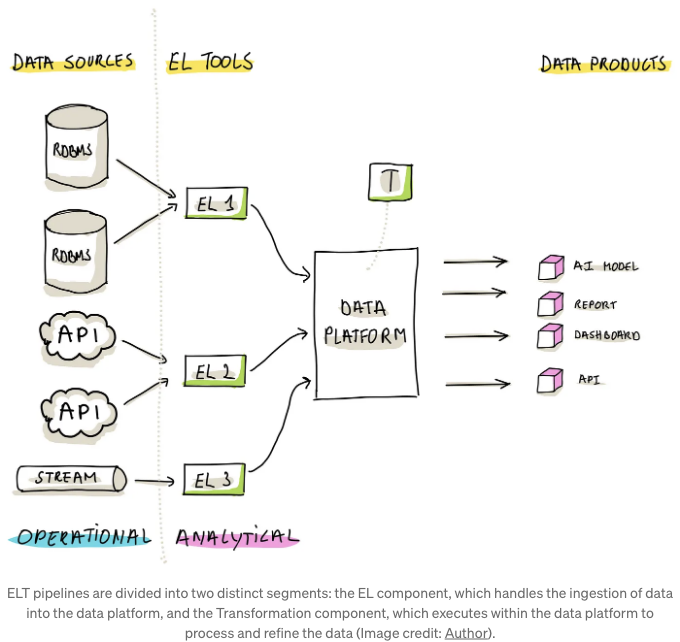 DATA SOURCES
EL TOOLS
DATA PRODUCTS
RDBMS
RDBMS
API
API
STREAM
EL 1
EL 2
EL 3
T
DATA
PLATFORM
AI MODEL
REPORT
DASHBOARD
API
OPERATIONAL
ANALYTICAL
ELT pipelines are divided into two distinct segments: the EL component, which handles the ingestion of data
into the data platform, and the Transformation component, which executes within the data platform to
process and refine the data (Image credit: Author).